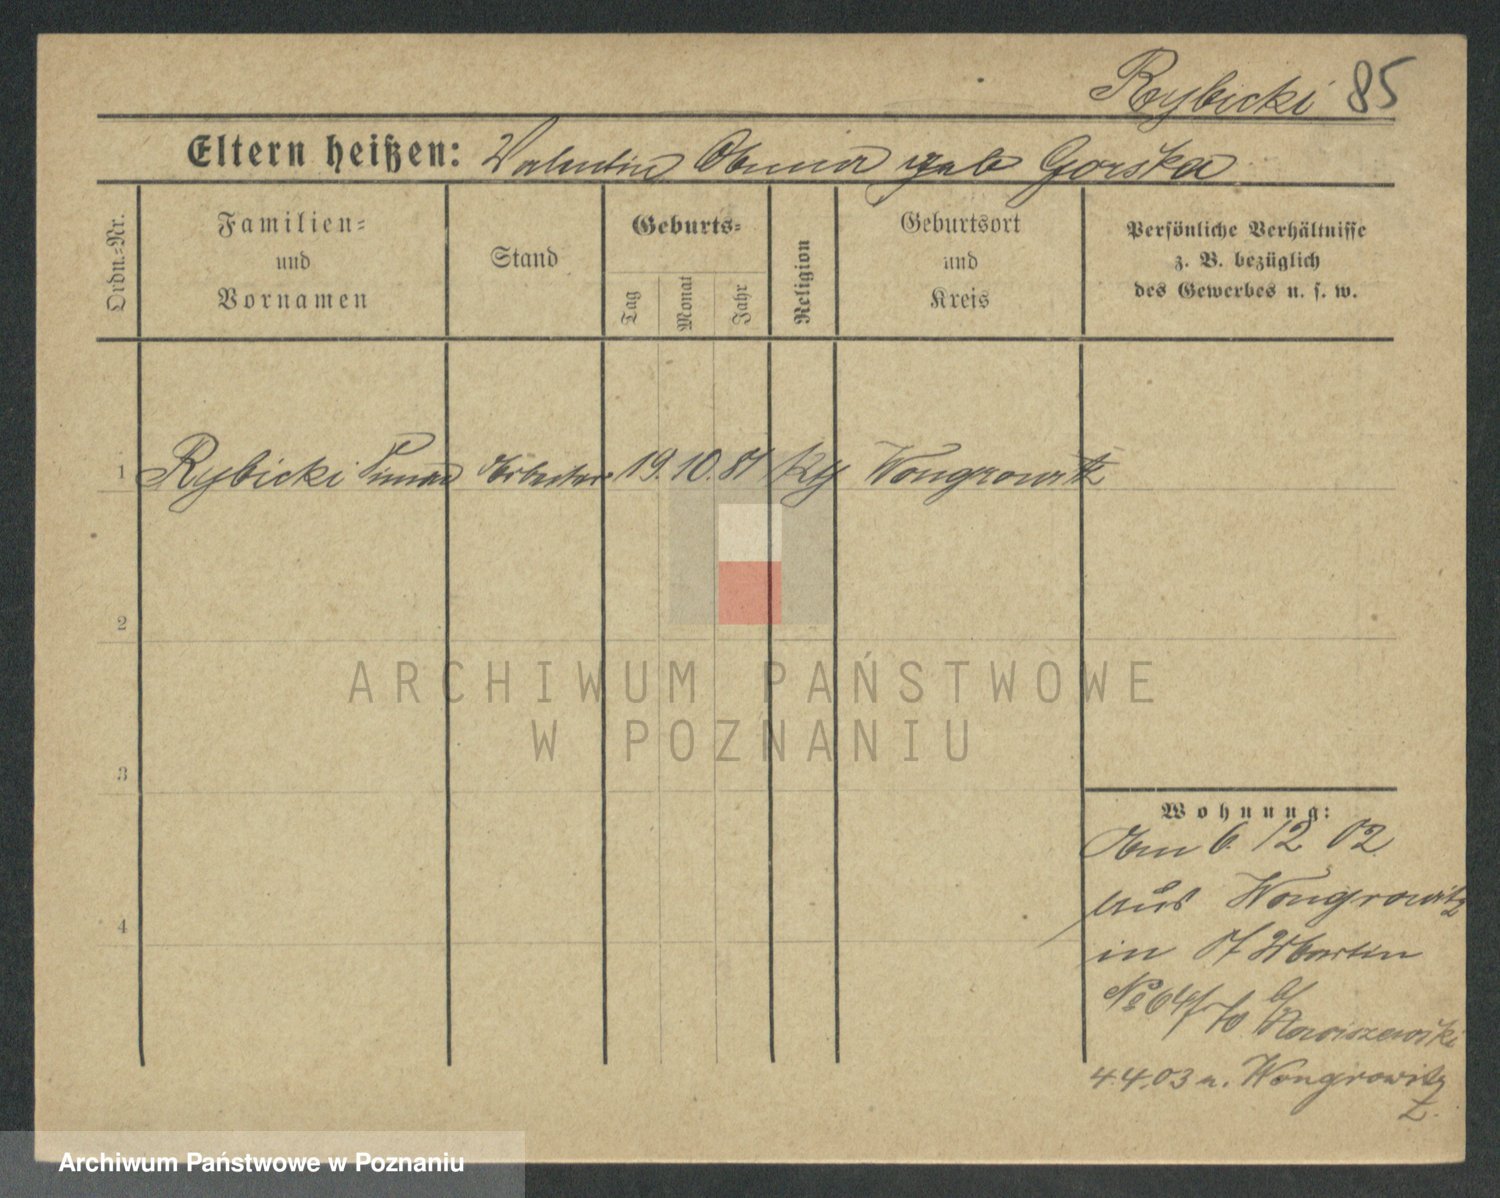 Rybicki 85
Eltern heißen: Valentin Anna geb Gorska
Ordn.-Nr.
Familien- und Vornamen
Stand
Geburts-
Tag
Monat
Jahr
Religion
Geburtsort und Kreis
Persönliche Verhältnisse
z. B. bezüglich
des Gewerbes u. s. w.
1 Rybicki Simon Arbeiter 19. 10. 81 kg Wongrowitz
2
ARCHIWUM PAŃSTWOWE
W POZNANIU
3
Wohnung:
Am 6. 12 02
aus Wongrowitz
in St Martin
No 64/ b/
4.4.03 n. Wongrowitz
Z.
4
Archiwum Państwowe w Poznaniu